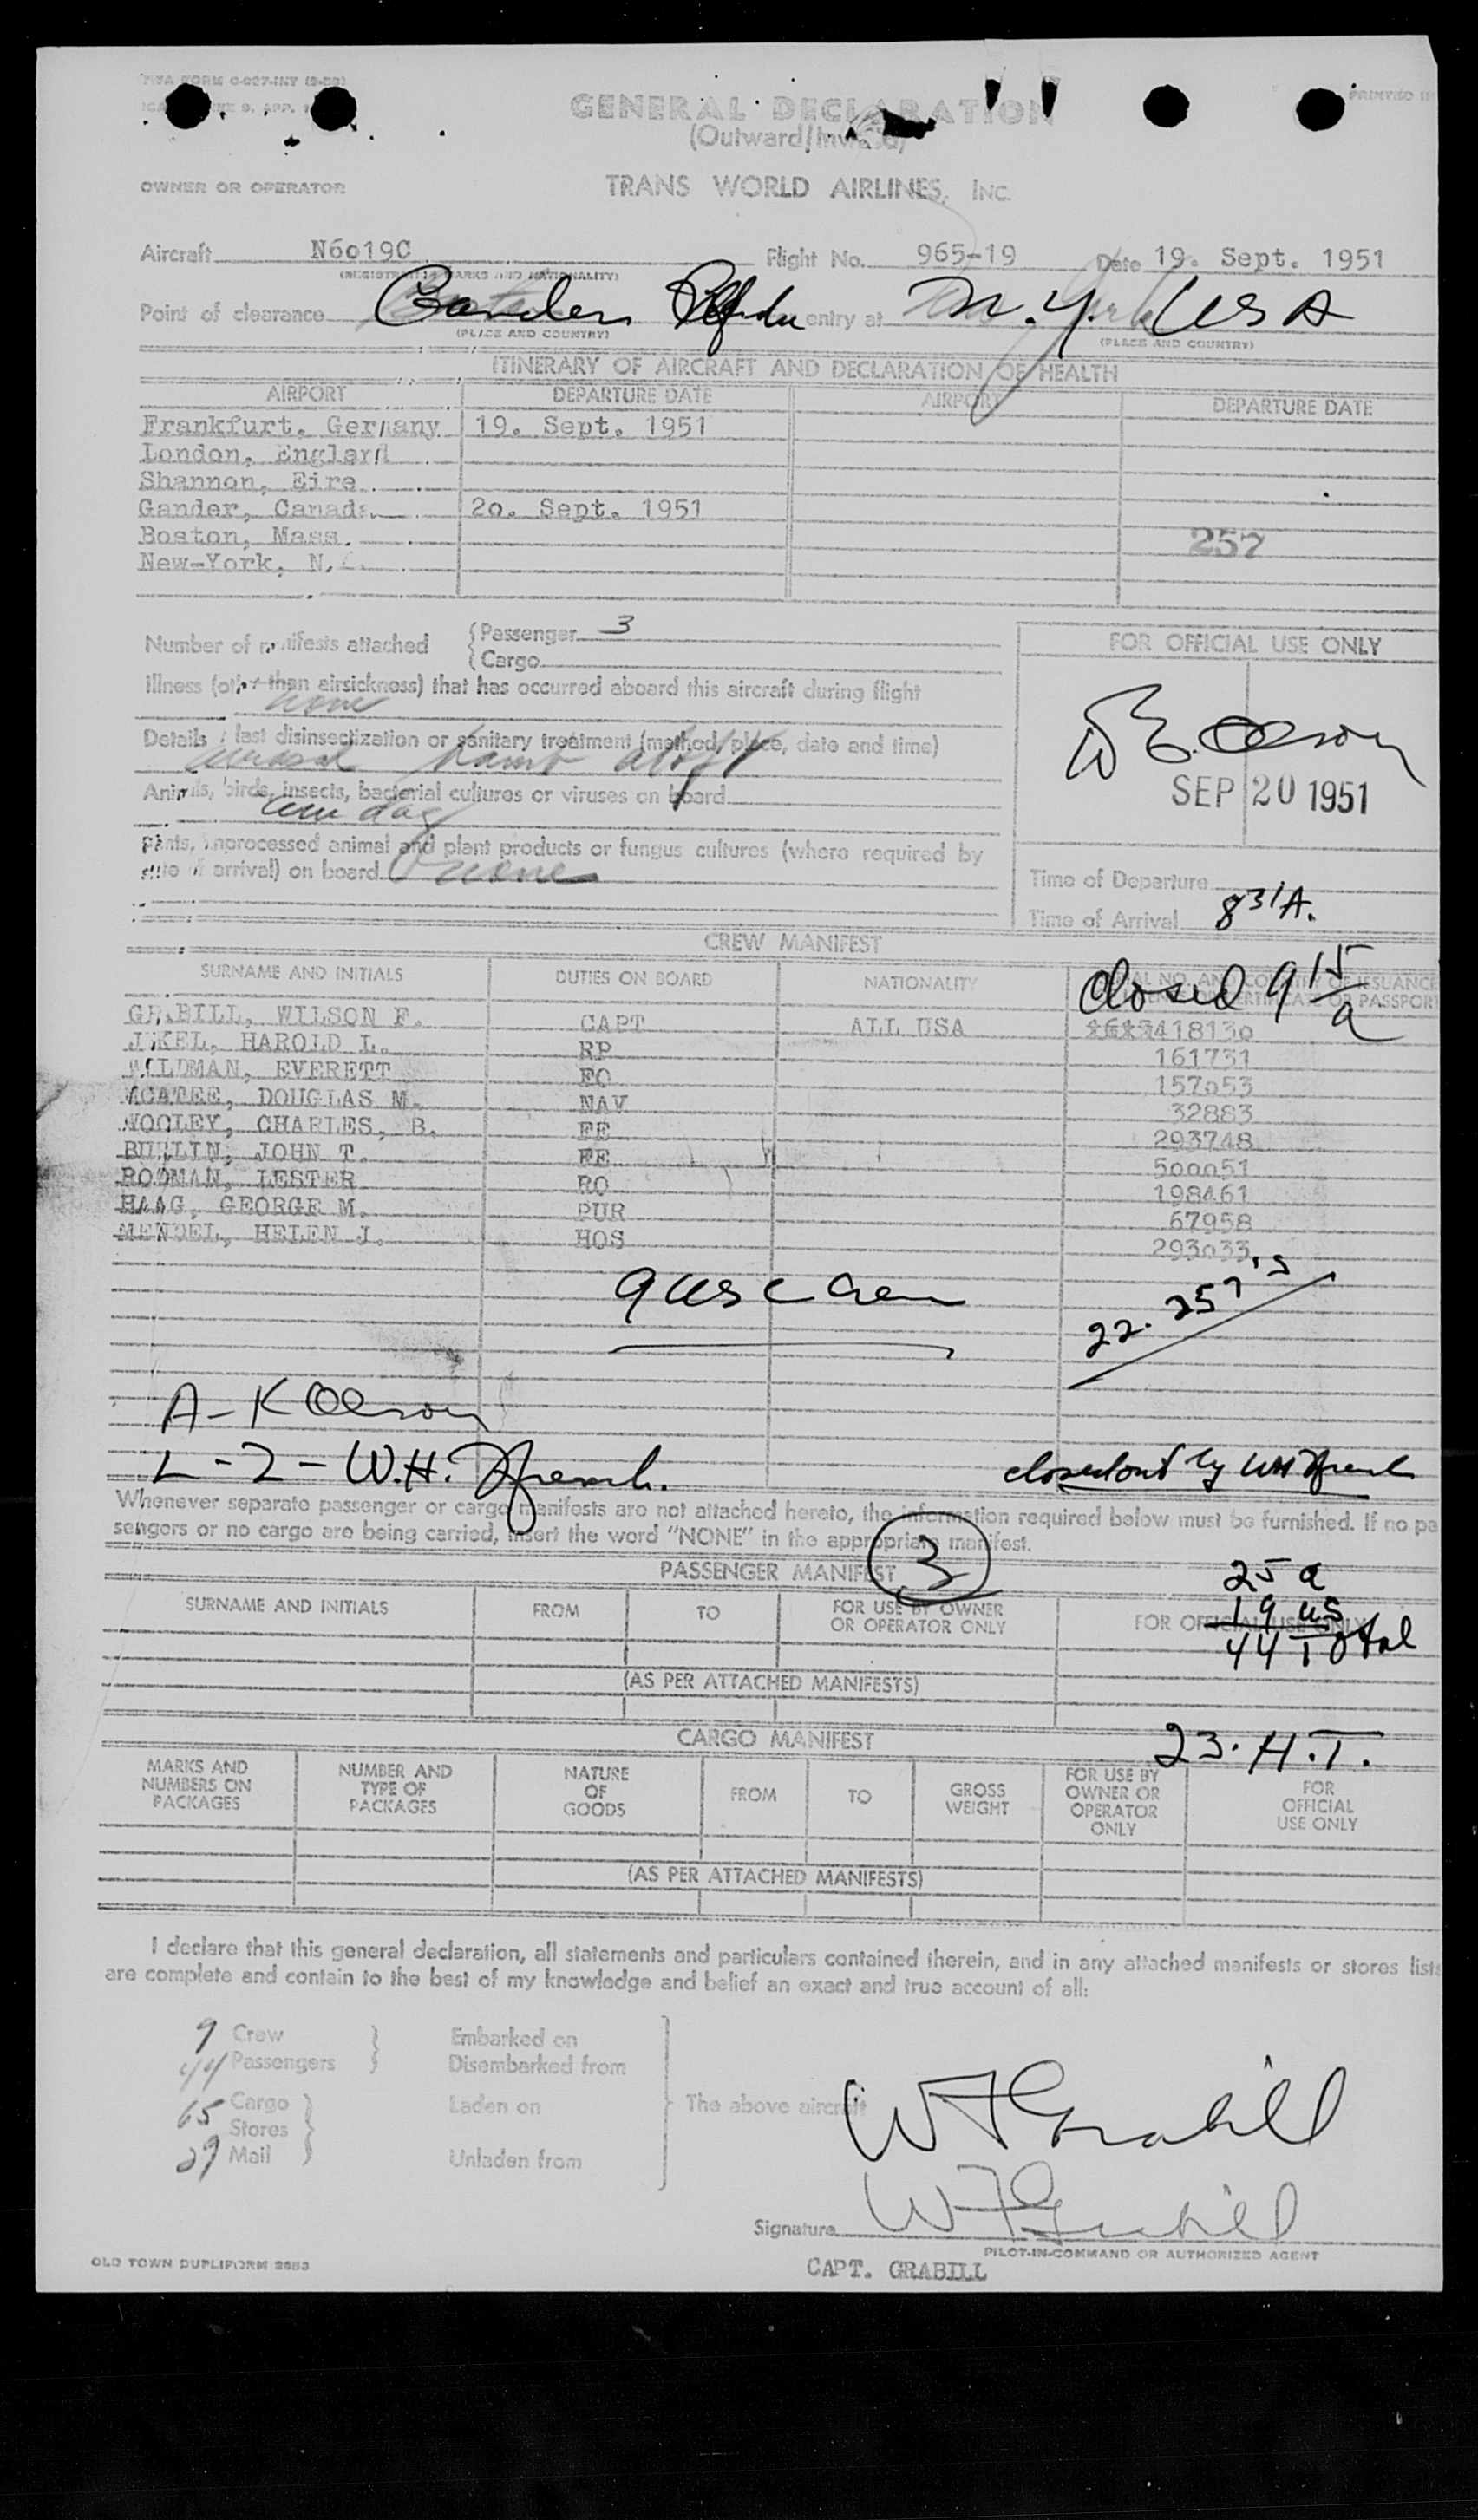 TWA FORM
GENERAL DECLARATION
PRINTED
(Outward/Inward)
OWNER OR OPERATOR TRANS WORLD AIRLINES, INC.
Aircraft N6o19C Flight No. 965-19 Date 19. Sept. 1951
(REGISTRATION MARKS AND NATIONALITY)
Point of clearance entry at N.Y. USA
(PLACE AND COUNTRY) (PLACE AND COUNTRY)
ITINERARY OF AIRCRAFT AND DECLARATION OF HEALTH
AIRPORT DEPARTURE DATE AIRPORT DEPARTURE DATE
Frankfurt, Germany 19. Sept. 1951
London, England
Shannon, Eire
Gander, Canada 2o. Sept. 1951
Boston, Mass. 257
New-York, N.
Number of manifests attached Passenger 3
Cargo
FOR OFFICIAL USE ONLY
Illness (other than airsickness) that has occurred aboard this aircraft during flight
none
Details last disinsectization or sanitary treatment (method, place, date and time)
Olson
aloft
SEP 20 1951
Animals, birds, insects, bacterial cultures or viruses on board
dog
Plants, unprocessed animal and plant products or fungus cultures (where required by
arrival) on board none
Time of Departure
Time of Arrival 8 31 A.
CREW MANIFEST
SURNAME AND INITIALS DUTIES ON BOARD NATIONALITY closed 9 15 a
GRABILL, WILSON F. CAPT ALL USA 418130
JEKEL, HAROLD L. RP 161731
WILDMAN, EVERETT FO 157o53
MCATEE, DOUGLAS M. NAV 32883
WOOLEY, CHARLES, B. FE 293748
JOHN T. FE 5ooo51
RODMAN, LESTER RO 198461
HAAG, GEORGE M. PUR 67958
MENDEL, HELEN J. HOS 293o33
9 usc Crew
22. 257's
A-K Olson
L-Z- W.H.
closed out by WH
Whenever separate passenger or cargo manifests are not attached hereto, the information required below must be furnished. If no pa
sengers or no cargo are being carried, insert the word "NONE" in the appropriate manifest.
3
PASSENGER MANIFEST
25 a
SURNAME AND INITIALS FROM TO FOR USE BY OWNER OR OPERATOR ONLY FOR OFFICIAL USE ONLY
19 us
44 Total
(AS PER ATTACHED MANIFESTS)
CARGO MANIFEST
23. H.T.
MARKS AND NUMBERS ON PACKAGES NUMBER AND TYPE OF PACKAGES NATURE OF GOODS FROM TO GROSS WEIGHT FOR USE BY OWNER OR OPERATOR ONLY FOR OFFICIAL USE ONLY
(AS PER ATTACHED MANIFESTS)
I declare that this general declaration, all statements and particulars contained therein, and in any attached manifests or stores lists
are complete and contain to the best of my knowledge and belief an exact and true account of all:
9 Crew Embarked on
44 Passengers Disembarked from
65 Cargo Laden on The above aircraft
Stores
29 Mail Unladen from
WF Grabill
Signature WF Grabill
PILOT-IN-COMMAND OR AUTHORIZED AGENT
OLD TOWN DUPLIFORM
CAPT. GRABILL